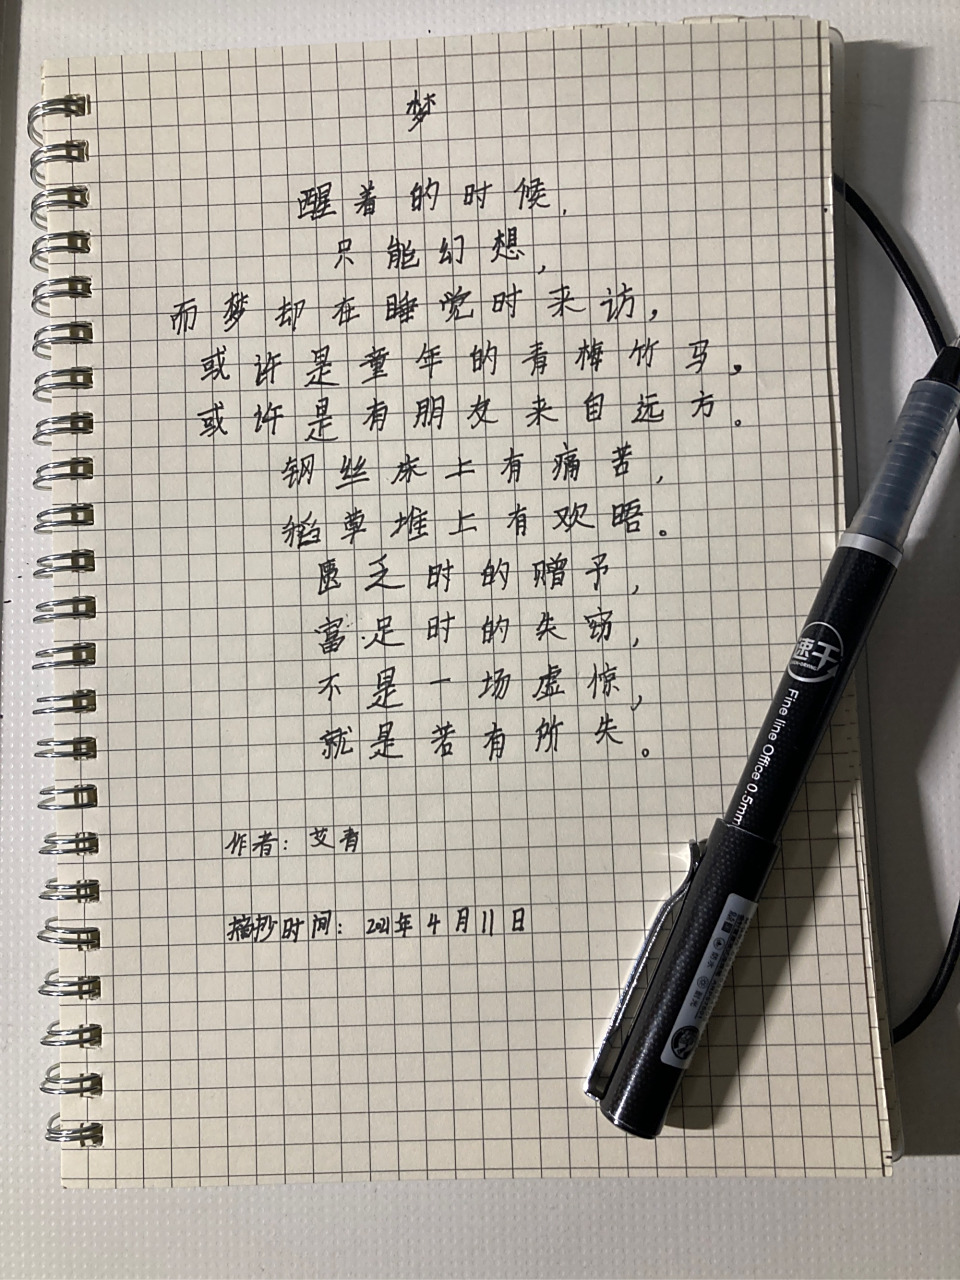 梦
醒着的时候,
只能幻想,
而梦却在睡觉时来访,
或许是童年的青梅竹马,
或许是有朋友来自远方。
钢丝床上有痛苦,
稻草堆上有欢晤。
匮乏时的赠予,
富足时的失窃,
不是一场虚惊,
就是若有所失。
作者: 艾青
摘抄时间: 2021年4月11日
速干
Fine line Office 0.5mm